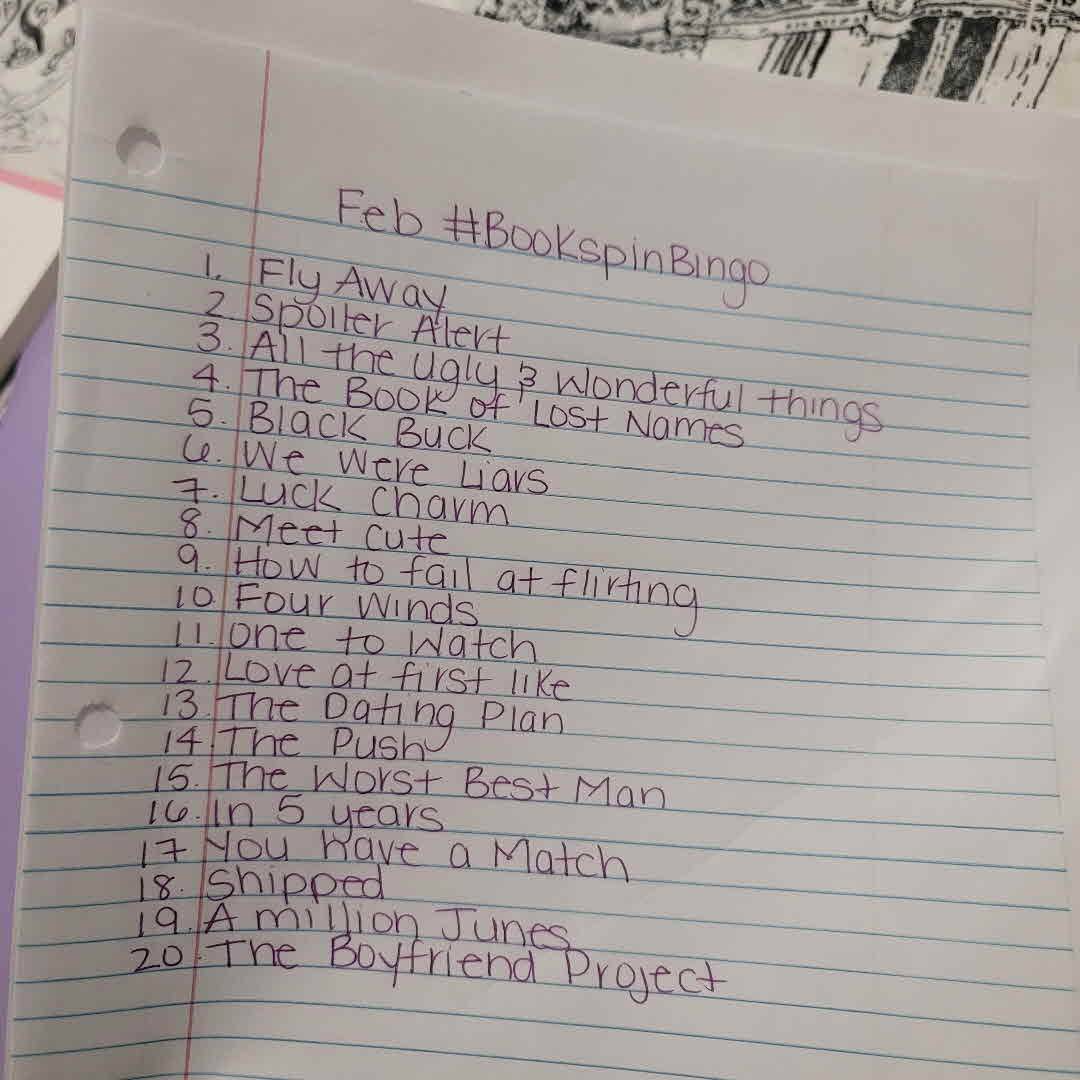 Feb #BookspinBingo
1. Fly Away
2. Spoiler Alert
3. All the Ugly & Wonderful things
4. The Book of Lost Names
5. Black Buck
6. We Were Liars
7. Luck Charm
8. Meet Cute
9. How to fail at flirting
10. Four Winds
11. One to Watch
12. Love at first like
13. The Dating Plan
14. The Push
15. The Worst Best Man
16. In 5 years
17 You Have a Match
18. Shipped
19. A million Junes
20. The Boyfriend Project